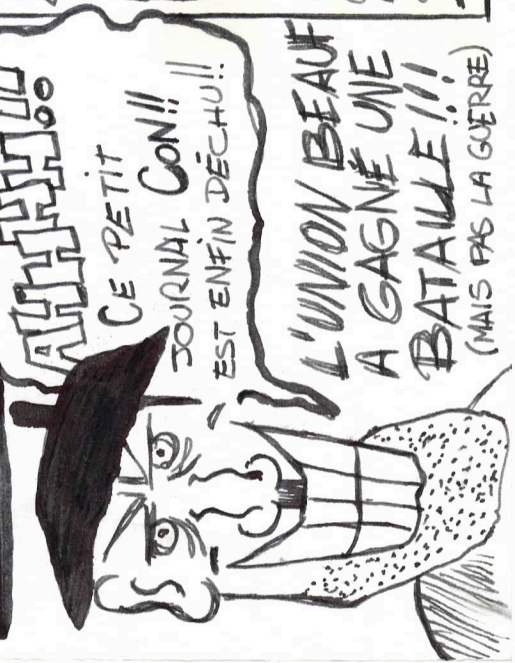 AHHHH!!
CE PETIT
JOURNAL CON!!
EST ENFIN DÉCHU!!
L'UNION BEAUF
A GAGNÉ UNE
BATAILLE!!!
(MAIS PAS LA GUERRE)